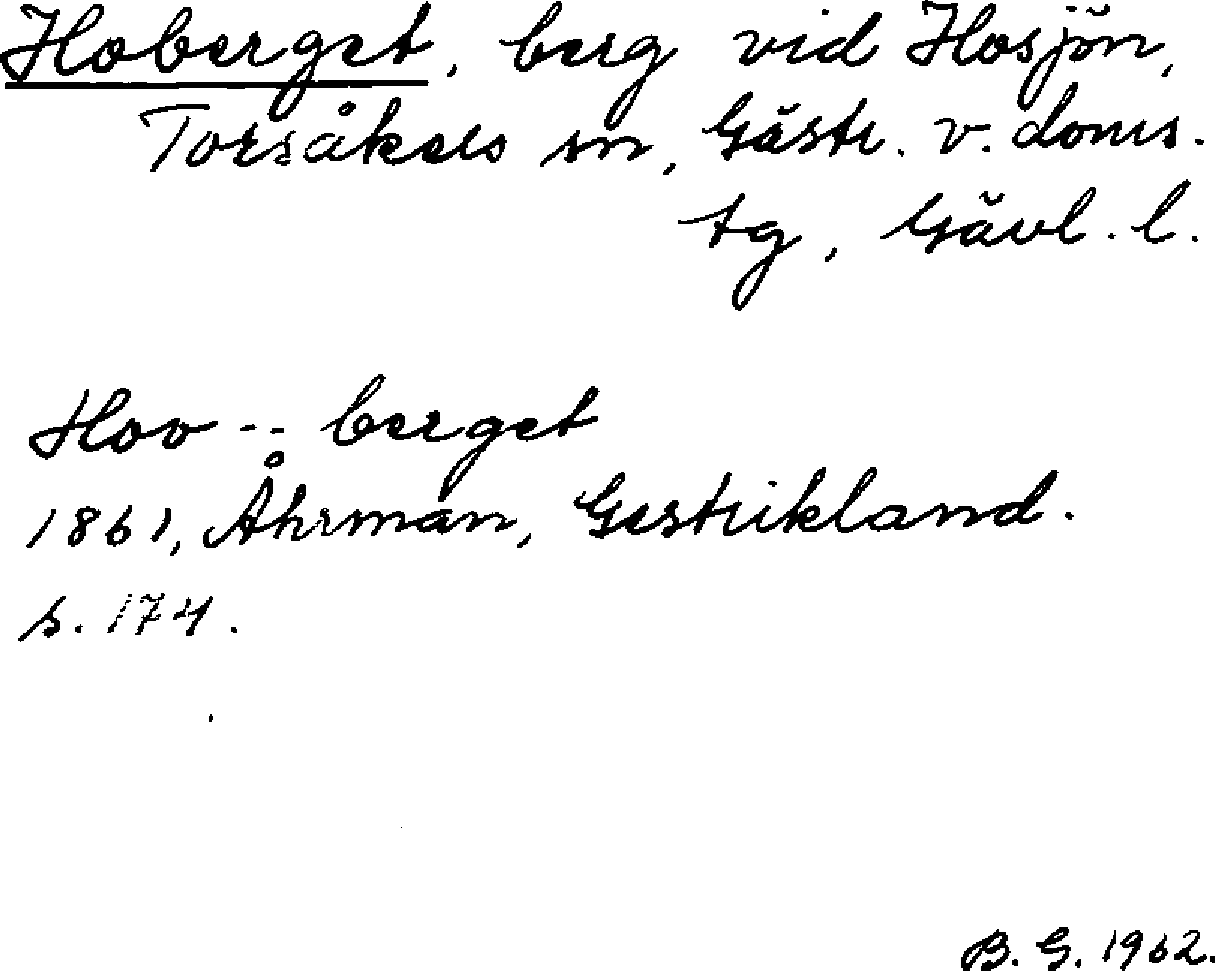 Hoberget, berg vid Hosjön,
Torsåkers sn, Gästr. v. doms.
tg, Gävl. l.
Hoo -- berget
1861, Åhrman, Gestrikland.
s. 174.
B. G. 1962.